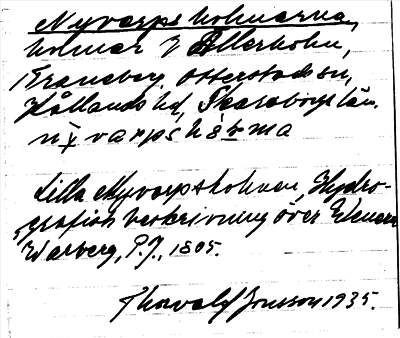 Nyvarpsholmarna,
holmar i Ållerholm,
Traneberg. Otterstads sn,
Kållands hd, Skaraborgs län.
Lilla Nyvarpsholmen, Hydro-
grafisk beskrivning över Wenern
Warberg, P.J., 1805.
Thorvald Jonsson 1935.